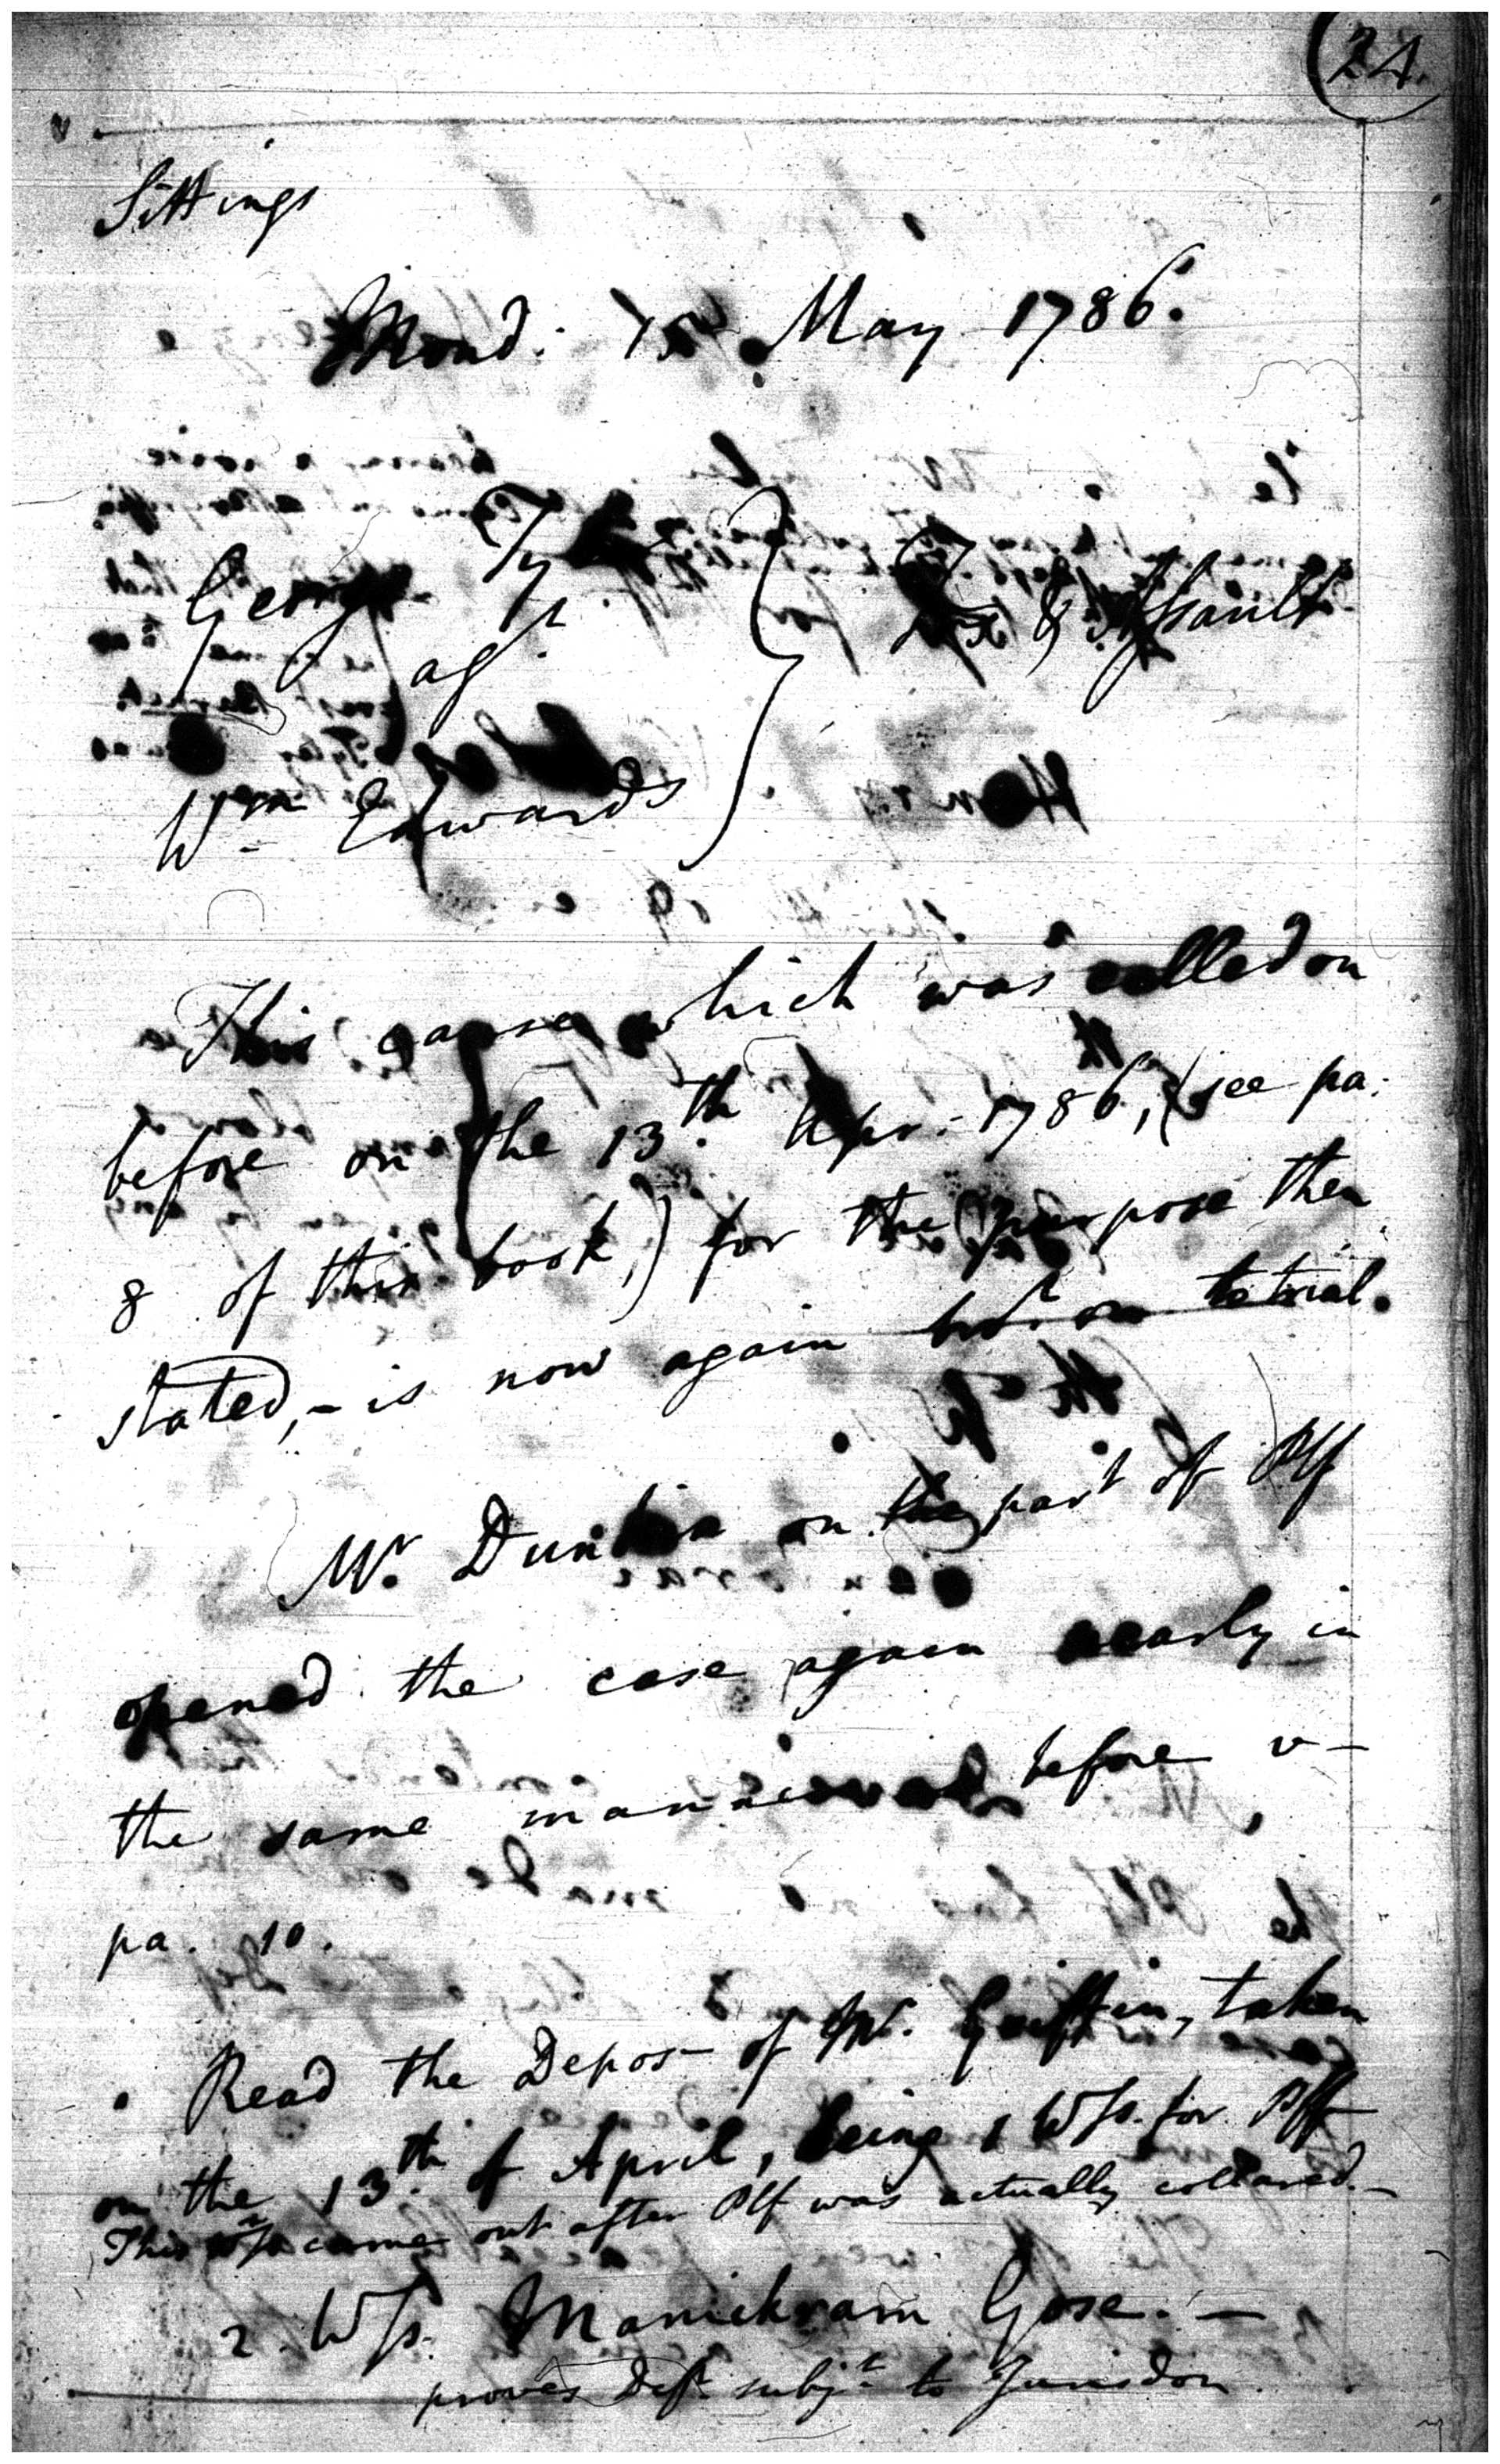 24.
Sittings
Mond. 15 May 1786.
George Tyler
agt.
Wm. Edwards
Trs & Assault
This cause which was called on
before on the 13th. Apr. 1786, (see pa.
8 of this book,) for the purpose then
stated, - is now again brot. on to trial.
Mr. Dunkin on the part of Plf
opened the case again nearly in
the same manner as before v-
pa. 10.
Read the Depos- of Mr. Griffin, taken
on the 13th. of April, being 1 Wss. for Plff
This Wss came out after Plf was actually collared. -
2. Wss. Manickram Gose. -
proves Deft subjt. to Jurisdon.